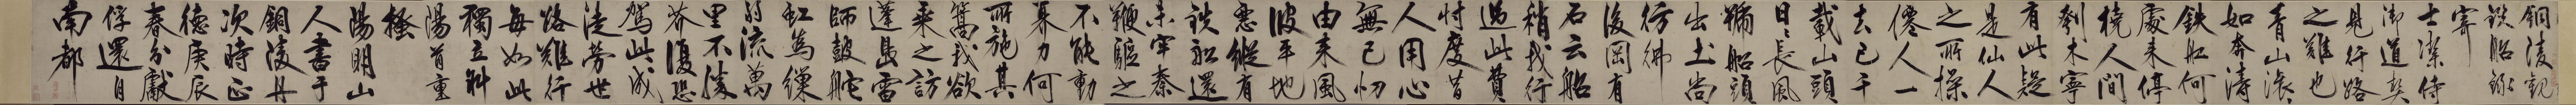 銅陵觀
鉄船錄
寄
士潔侍
御道契
見行路
之難也
青山滾滾
如奔濤
鉄船何
處来停
橈人間
刳木寧
有此疑
是仙人
之所操
僊人一
去已千
載山頭
日日長風
號船頭
出土尚
彷彿
後岡有
石云船
稍我行
過此費
忖度昔
人用心
無已忉
由来風
波平地
惡縱有
鉄船還
未牢秦
鞭驅之
不能動
奡力何
所施其
篙我欲
乘之訪
蓬島雷
師鼓舵
虹為繅
弱流萬
里不勝
芥復恐
駕此成
徒勞世
路難行
每如此
獨立斜
陽首重
搔
陽明山
人書于
銅陵舟
次時正
德庚辰
春分獻
俘還自
南都